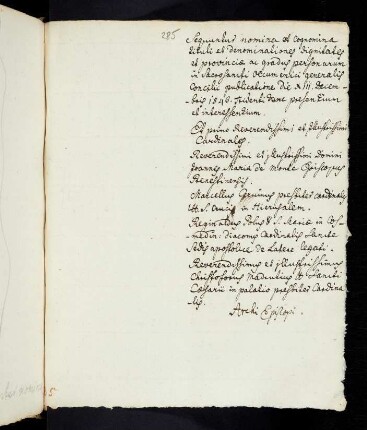 285
Sequuntur nomina et cognomina
tituli et denominationes dignitates
et provinciæ ac gradus personarum
in Sacrosancti Œcumenici generalis
Concilij publicatione Die XIII. Decem-
bris 1545. Tridenti tunc presentium
et interessentium.
Et primo Reverendissimi et Illustrissimi
Cardinales.
Reverendissimi et Illustrissimi Domini
Joannes Maria de Monte Episcopus
Prænestinensis.
Marcellus Cervinus presbiter cardinalis
tt. S. Crucis in Hierusalem.
Reginaldus Polus S. Mariæ in Cos-
medin. diaconus Cardinalis Sanctæ
Sedis apostolicæ de Latere legati.
Reverendissimus et Illustrissimus
Christoforus Madrutius tt. Sancti
Cæsarii in palatio presbiter Cardina-
lis.
Archi Episcopi.
5